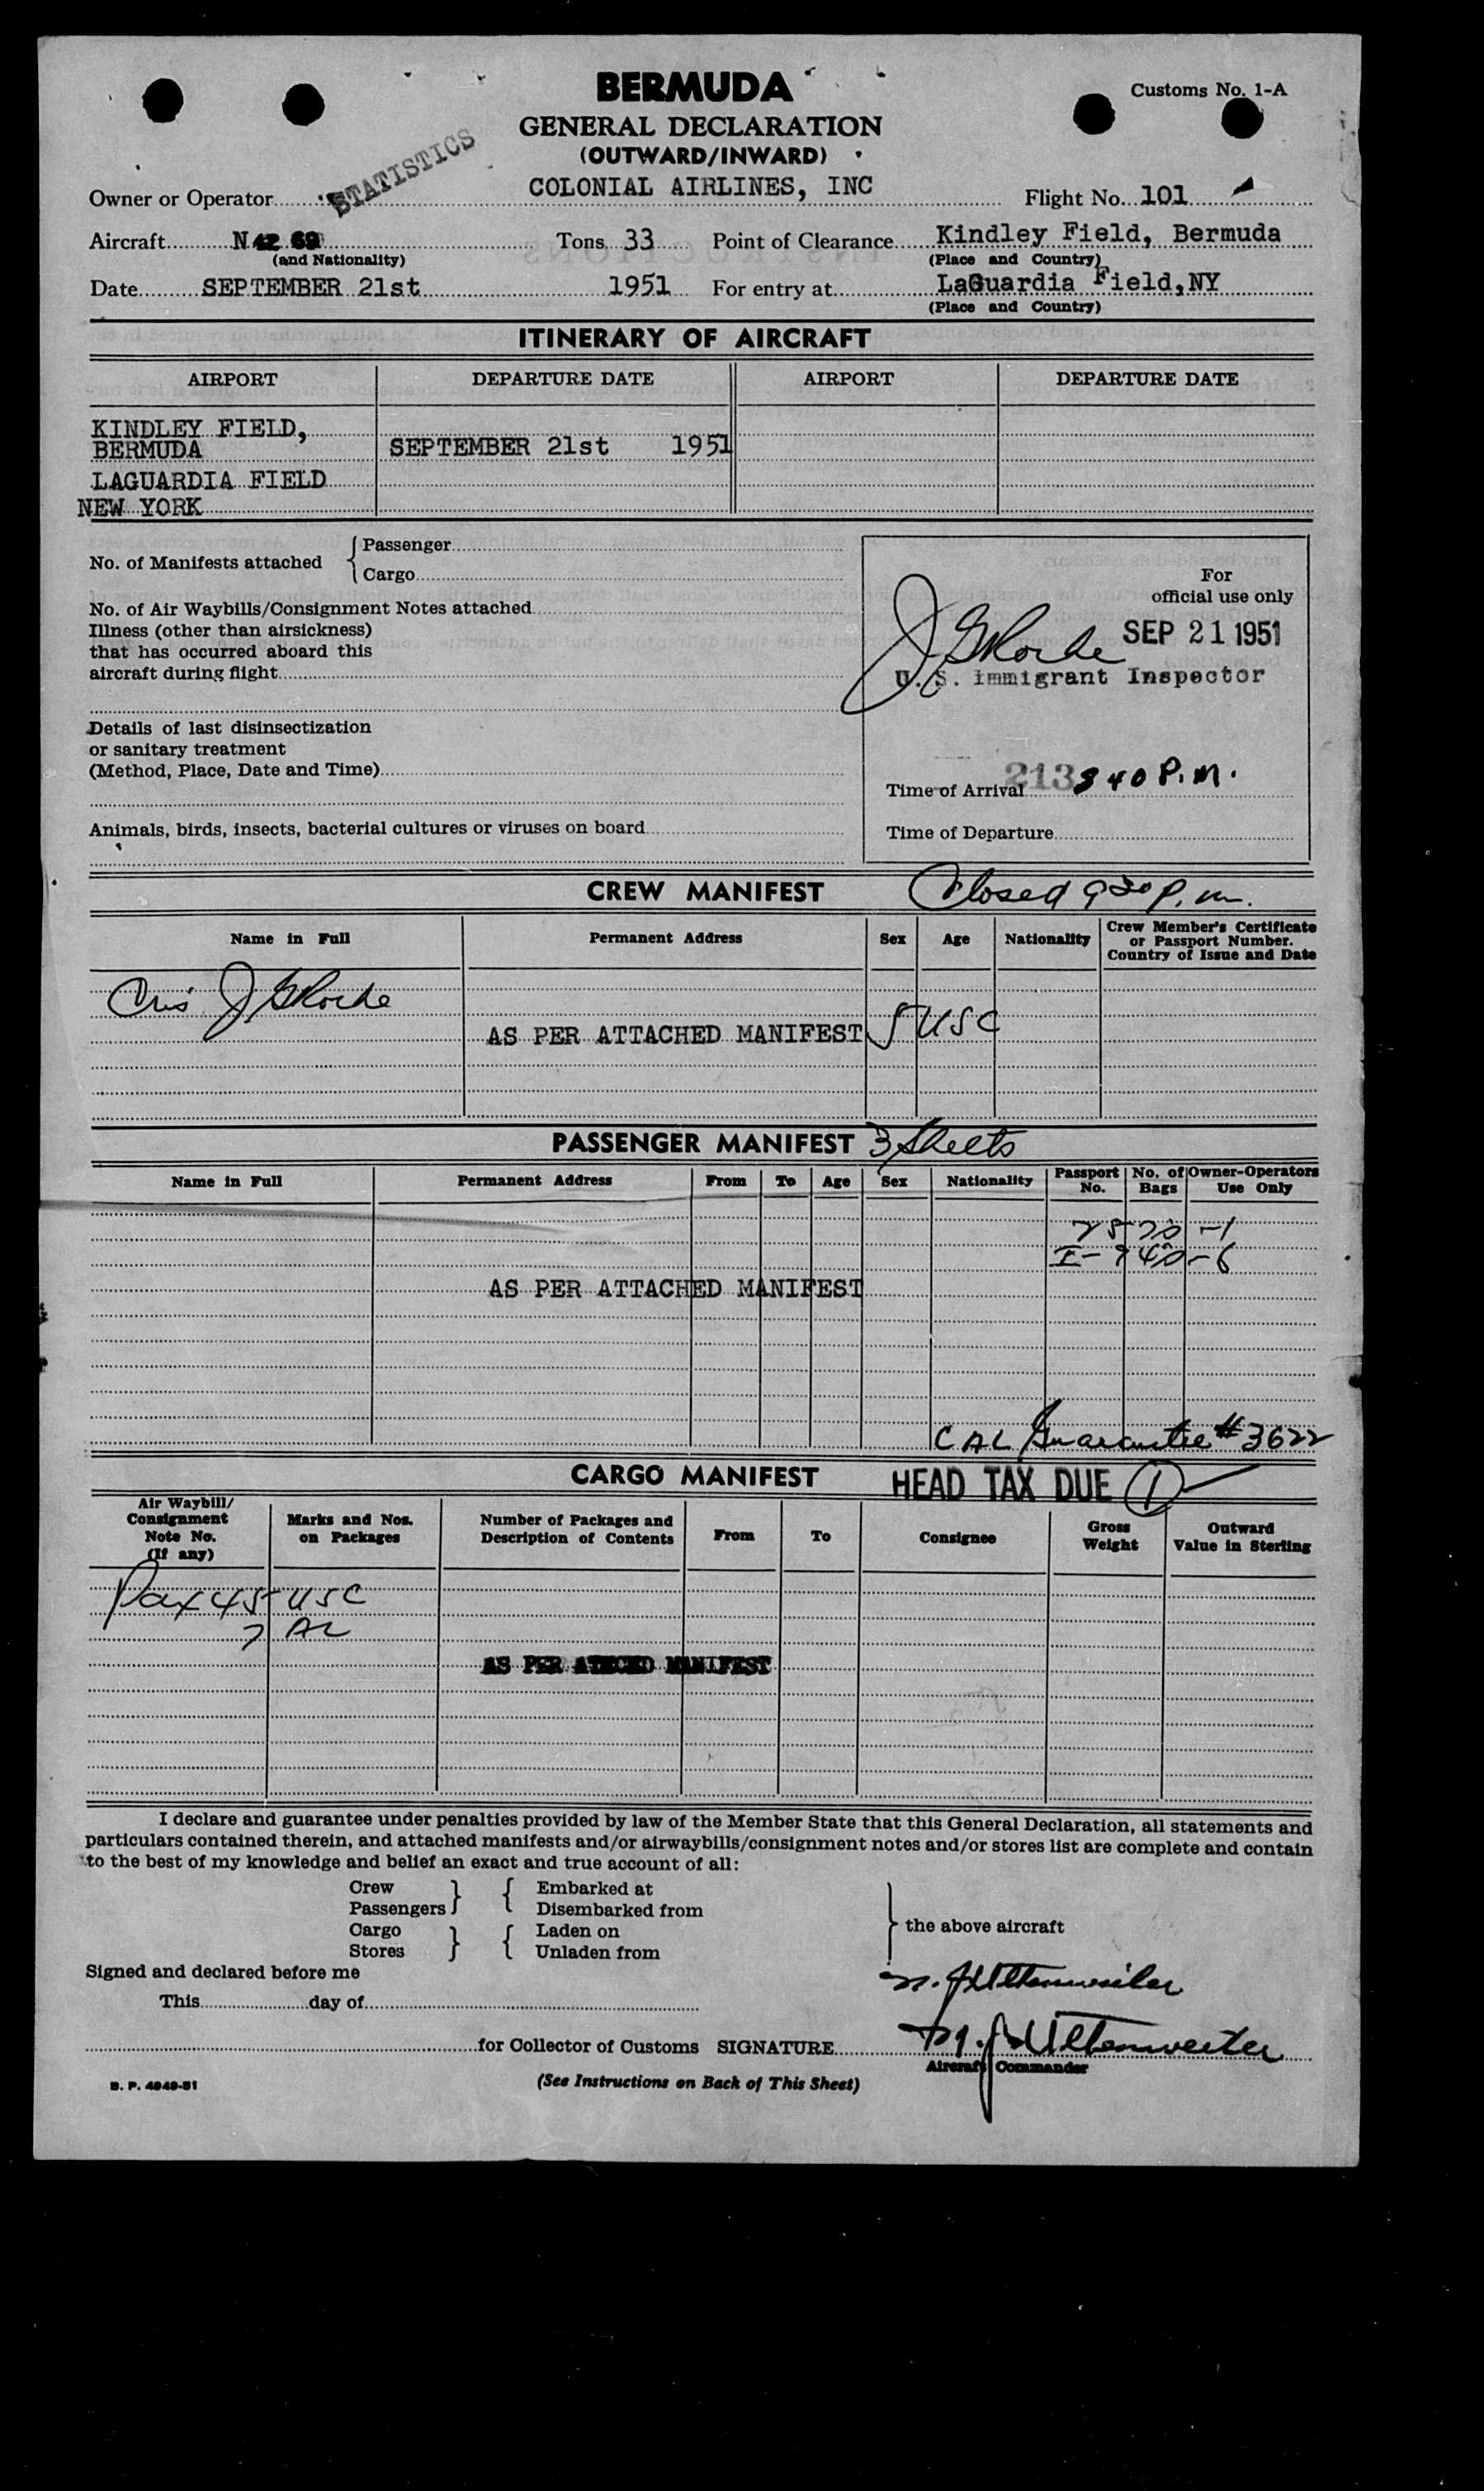 BERMUDA
Customs No. 1-A
GENERAL DECLARATION
(OUTWARD/INWARD)
STATISTICS
Owner or Operator COLONIAL AIRLINES, INC Flight No. 101
Aircraft N Tons 33 Point of Clearance Kindley Field, Bermuda
(and Nationality) (Place and Country)
Date SEPTEMBER 21st 1951 For entry at LaGuardia Field,NY
(Place and Country)
ITINERARY OF AIRCRAFT
AIRPORT DEPARTURE DATE AIRPORT DEPARTURE DATE
KINDLEY FIELD,
BERMUDA SEPTEMBER 21st 1951
LAGUARDIA FIELD
NEW YORK
No. of Manifests attached { Passenger
Cargo
No. of Air Waybills/Consignment Notes attached
Illness (other than airsickness)
that has occurred aboard this
aircraft during flight
Details of last disinsectization
or sanitary treatment
(Method, Place, Date and Time)
Animals, birds, insects, bacterial cultures or viruses on board
For
official use only
SEP 21 1951
U.S. immigrant Inspector
213
Time of Arrival 840 P.M.
Time of Departure
CREW MANIFEST Closed 930 P.m.
Name in Full Permanent Address Sex Age Nationality Crew Member's Certificate
or Passport Number.
Country of Issue and Date
AS PER ATTACHED MANIFEST 5 USC
PASSENGER MANIFEST 3 Sheets
Name in Full Permanent Address From To Age Sex Nationality Passport No. No. of Bags Owner-Operators Use Only
AS PER ATTACHED MANIFEST
CAL Guarantee #3622
CARGO MANIFEST HEAD TAX DUE 1
Air Waybill/
Consignment
Note No.
(If any)
Marks and Nos.
on Packages
Number of Packages and
Description of Contents
From To Consignee Gross
Weight
Outward
Value in Sterling
Pax 45 USC
7 AL
AS PER MANIFEST
I declare and guarantee under penalties provided by law of the Member State that this General Declaration, all statements and
particulars contained therein, and attached manifests and/or airwaybills/consignment notes and/or stores list are complete and contain
to the best of my knowledge and belief an exact and true account of all:
Crew } { Embarked at
Passengers Disembarked from
Cargo } { Laden on
Stores Unladen from
} the above aircraft
Signed and declared before me
This day of
for Collector of Customs SIGNATURE
Aircraft Commander
B. P. 4949-51
(See Instructions on Back of This Sheet)